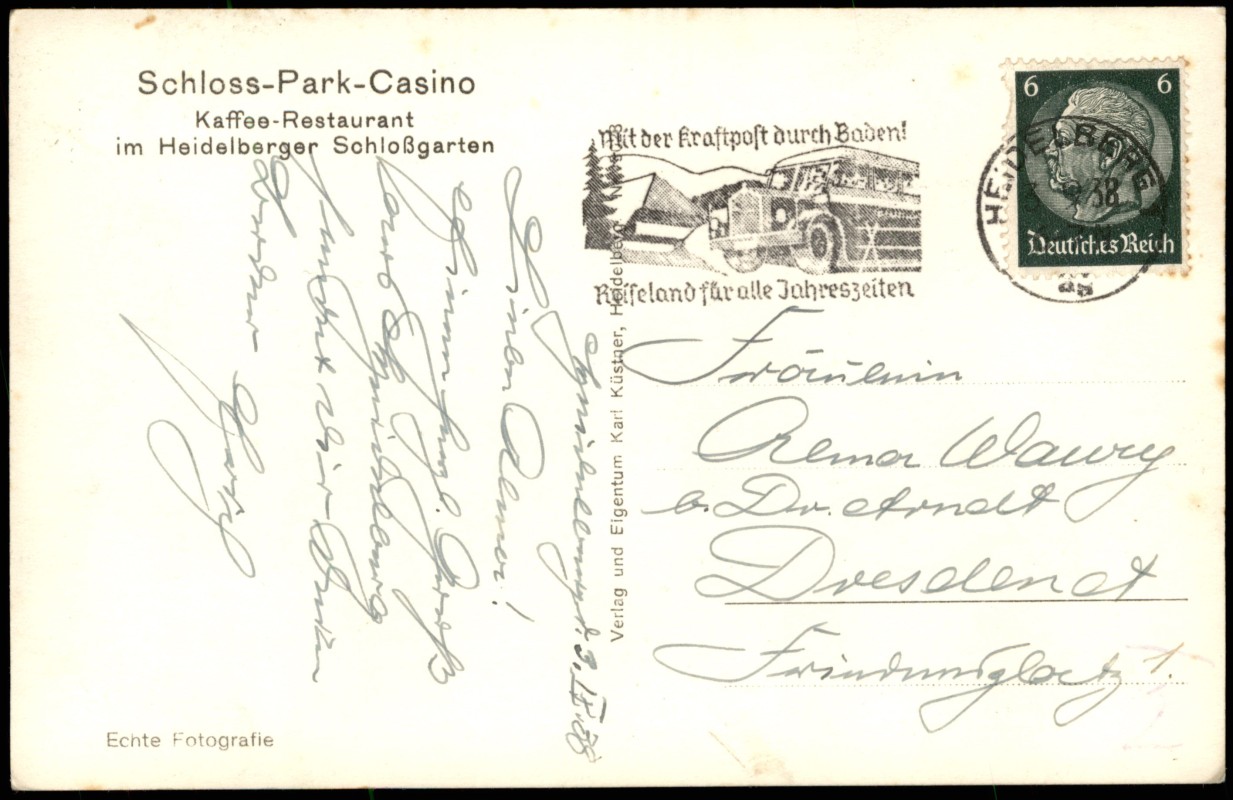 Schloss-Park-Casino
Kaffee-Restaurant
im Heidelberger Schloßgarten
Mit der Kraftpost durch Baden!
Reiseland für alle Jahreszeiten
6 6
Deutsches Reich
HEIDELBERG
38
Verlag und Eigentum Karl Küstner, Heidelberg
Heidelberg, d. 3.IX.38
Liebe Alma!
Einen herzl. Gruß
aus Heidelberg
sendet Dir Dein
Fräulein
Alma Wawry
b. Dr. Arndt
Dresden A
Friedensplatz 1.
Echte Fotografie